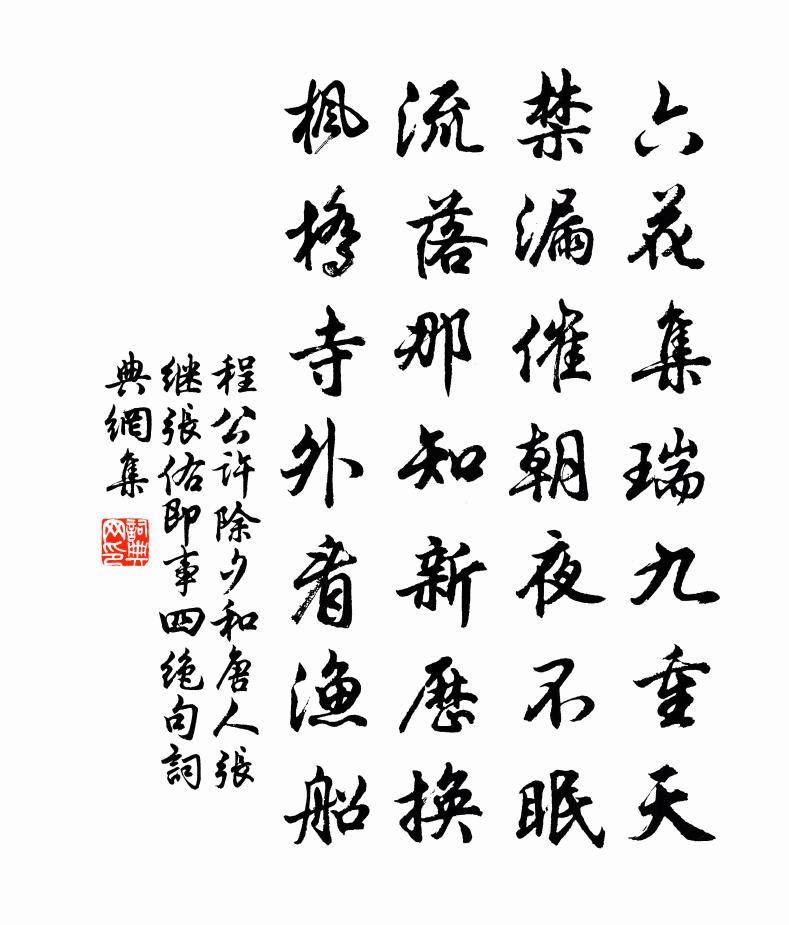 六花集瑞九重天
禁漏催朝夜不眠
流落那知新歷換
楓橋寺外看漁船
程公許除夕和唐人張
继張佑即事四绝句詞
典網集
詞典网印